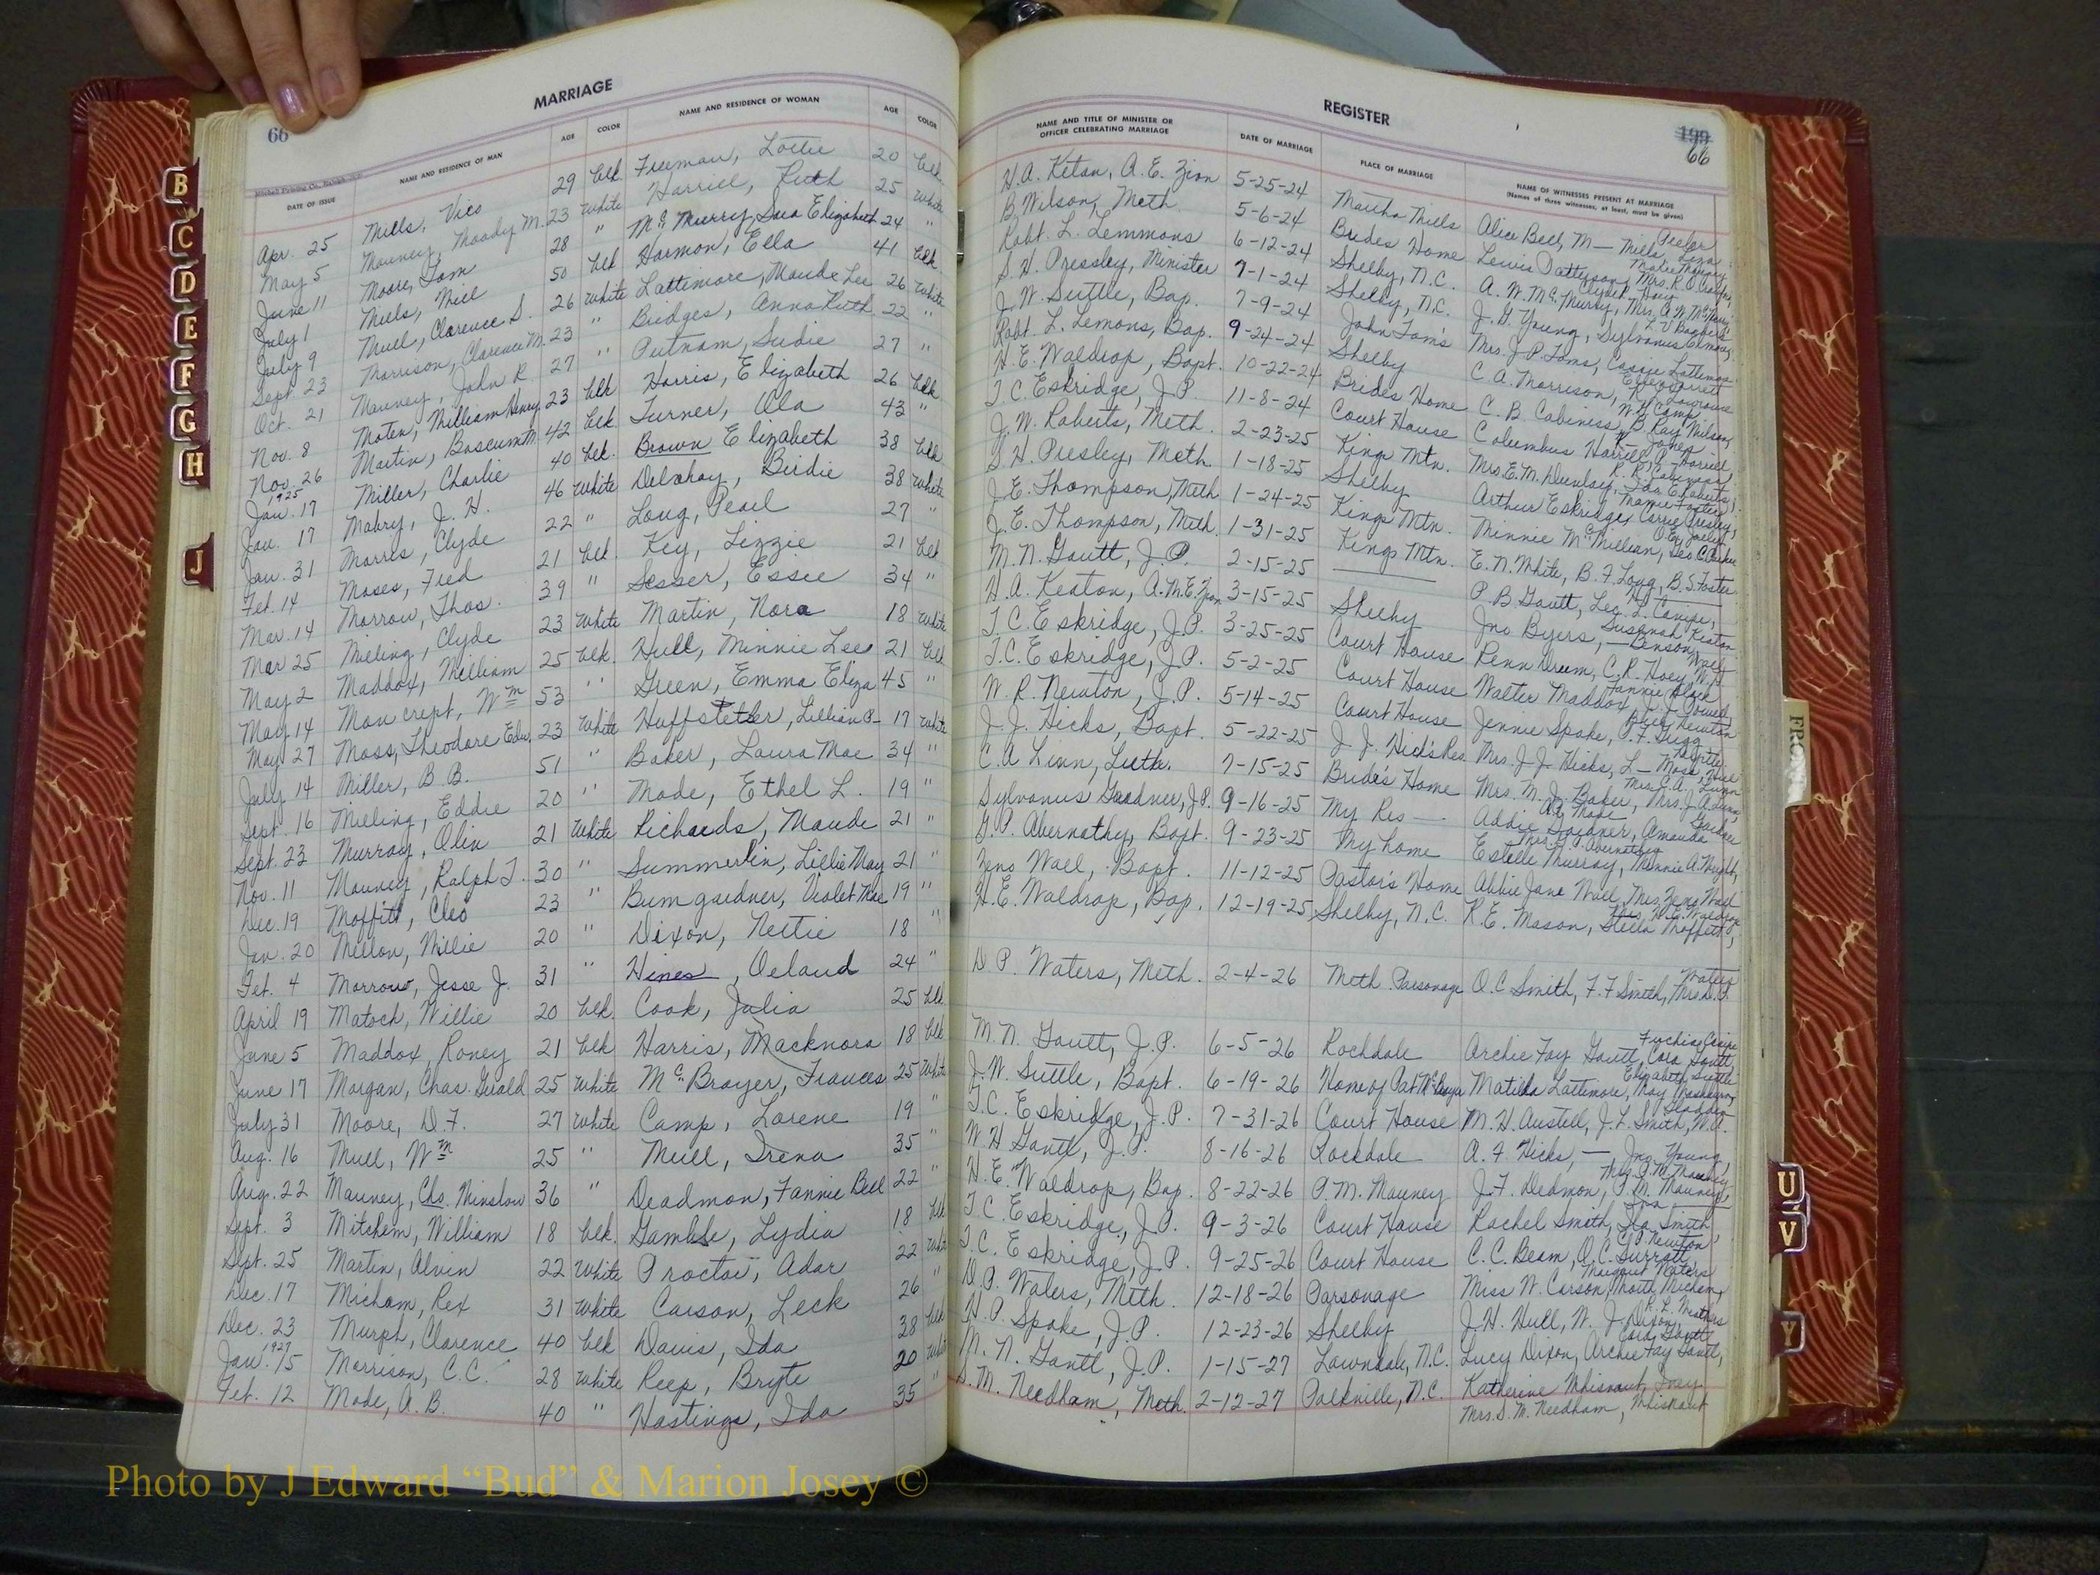 MARRIAGE
66
Mitchell Printing Co., Raleigh
DATE OF ISSUE NAME AND RESIDENCE OF MAN AGE COLOR NAME AND RESIDENCE OF WOMAN AGE COLOR
Apr. 25 Mills, Vics 29 blk Freeman, Lottie 20 blk
May 5 Mauney, Moody M. 23 white Harrill, Ruth 25 white
June 11 Moore, Tom 28 " McMurry, Sara Elizabeth 24 "
July 1 Mills, Weil 50 blk Harmon, Ella 41 blk
July 9 Mull, Clarence S. 26 white Lattimore, Maude Lee 26 white
Sept. 23 Morrison, Clarence M. 23 " Bridges, Anna Ruth 22 "
Oct. 21 Mauney, John R. 27 " Putnam, Sudie 27 "
Nov. 8 Moten, William Henry 23 blk Harris, Elizabeth 26 blk
Nov. 26 Martin, Boscum M. 42 blk Turner, Ola 43 "
1925
Jan. 17 Miller, Charlie 40 blk. Brown Elizabeth 38 blk
Jan. 17 Mabry, J. H. 46 white Delahay, Birdie 38 white
Jan. 31 Morris, Clyde 22 " Long, Pearl 27 "
Feb. 14 Moses, Fred 21 blk. Key, Lizzie 21 blk
Mar. 14 Morrow, Thos. 39 " Sesser, Essie 34 "
Mar 25 Mieling, Clyde 23 white Martin, Nora 18 white
May 2 Maddox, William 25 blk. Hull, Minnie Lee 21 blk
May 14 Moncrept, Wm 53 " Green, Emma Eliza 45 "
May 27 Moss, Theodore Edw. 23 white Huffstetler, Lillian P- 17 white
July 14 Miller, B. B. 51 " Baker, Laura Mae 34 "
Sept. 16 Mieling, Eddie 20 " Mode, Ethel L. 19 "
Sept. 23 Murray, Olin 21 white Richards, Maude 21 "
Nov. 11 Mauney, Ralph T. 30 " Summerlin, Lillie May 21 "
Dec. 19 Moffitt, Cleo 23 " Bumgardner, Violet Mae 19 "
Jan. 20 Mellon, Willie 20 " Dixon, Nettie 18 "
Feb. 4 Morrow, Jesse J. 31 " Hines, Oeland 24 "
April 19 Matoch, Willie 20 blk Cook, Julia 25 blk
June 5 Maddox, Roney 21 blk Harris, Macknora 18 blk
June 17 Morgan, Chas. Gerald 25 white McBrayer, Frances 25 white
July 31 Moore, D. F. 27 white Camp, Lorene 19 "
Aug. 16 Mull, Wm 25 " Mull, Irena 35 "
Aug. 22 Mauney, Chs. Winslow 36 " Deadmon, Fannie Bell 22 "
Sept. 3 Mitchem, William 18 blk. Gamble, Lydia 18 blk
Sept. 25 Martin, Alvin 22 white Proctor, Adar 22 white
Dec. 17 Micham, Rex 31 white Carson, Leck 26 "
Dec. 23 Murph, Clarence 40 blk Davis, Ida 38 blk
1927
Jan. 15 Morrison, C. C. 28 white Reep, Bryte 20 white
Feb. 12 Mode, A. B. 40 " Hastings, Ida 35 "
REGISTER
199
66
NAME AND TITLE OF MINISTER OR OFFICER CELEBRATING MARRIAGE DATE OF MARRIAGE PLACE OF MARRIAGE NAME OF WITNESSES PRESENT AT MARRIAGE
(Names of three witnesses, at least, must be given)
H. A. Ketan, A. E. Zion 5-25-24 Martha Mills Alice Bell, M- Mills,
B. Wilson, Meth. 5-6-24 Brides Home Lewis Patterson,
Robt. L. Lemmons 6-12-24 Shelby, N.C. A. W. McMurry, Mrs. A. W. McMurry
S. H. Pressley, Minister 7-1-24 Shelby, N.C. J. G. Young, Sylvanus
J. W. Suttle, Bap. 7-9-24 John Tom's Mrs. J. P. Toms, Lattimore
Robt. L. Lemons, Bap. 9-24-24 Shelby C. A. Morrison,
H. E. Waldrop, Bapt. 10-22-24 Brides Home C. B. Cabiniss, B. Ray Wilson,
T. C. Eskridge, J. P. 11-8-24 Court House Columbus Harrill,
J. W. Roberts, Meth. 2-23-25 Kings Mtn. Mrs. E. M. Dunlap, Ida E. Roberts,
S. H. Presley, Meth 1-18-25 Shelby Arthur Eskridge, Carrie Presley,
J. E. Thompson, Meth 1-24-25 Kings Mtn. Minnie McMillian,
J. E. Thompson, Meth. 1-31-25 Kings Mtn. E. N. White, B. F. Long, B. S. Foster
M. N. Gantt, J. P. 2-15-25 P. B. Gantt, Leo. L. Canipe,
H. A. Keaton, A. M. E. Zion 3-15-25 Shelby Jno Byers, Benson, Susanah Keaton
T. C. Eskridge, J. P. 3-25-25 Court House Penn Drum, C. R. Hoey,
T. C. Eskridge, J. P. 5-2-25 Court House Walter Maddox, Fannie Black
W. R. Newton, J. P. 5-14-25 Court House Jennie Spake, P. F. Grigg
J. J. Hicks, Bapt. 5-22-25 J. J. Hick's Res. Mrs. J. J. Hicks, L- Moss,
C. A. Linn, Luth. 7-15-25 Bride's Home Mrs. M. J. Baker,
Sylvanus Gardner, J. P. 9-16-25 My Res- Addie Gardner, Amanda Gardner
G. P. Abernathy, Bapt. 9-23-25 My home Estelle Murray, Minnie A. Wright,
Zeno Wall, Bapt. 11-12-25 Pastor's Home Abbie Jane Wall, Mrs. Zeno Wall
H. E. Waldrop, Bap. 12-19-25 Shelby, N. C. R. E. Mason, Stella Moffitt,
D. P. Waters, Meth. 2-4-26 Meth. Parsonage O. C. Smith, F. F. Smith, Mrs. D. P. Waters
M. N. Gantt, J. P. 6-5-26 Rockdale Archie Fay Gantt, Cora Gantt,
J. W. Suttle, Bapt. 6-19-26 Home of Pat McBrayer Matilda Lattimore, May Washburn, Elizabeth Suttle
T. C. Eskridge, J. P. 7-31-26 Court House M. H. Austell, J. L. Smith, W. A. Gladden
W. H. Gantt, J. P. 8-16-26 Rockdale A. F. Hicks, - Jno. Young,
H. E. Waldrop, Bap. 8-22-26 P. M. Mauney J. F. Dedmon, P. M. Mauney,
T. C. Eskridge, J. P. 9-3-26 Court House Rachel Smith, Ira Smith
T. C. Eskridge, J. P. 9-25-26 Court House C. C. Beam, O. C. Surratt, C. P. Newton,
D. P. Waters, Meth. 12-18-26 Parsonage Miss W. Carson, Motte Micham, Margaret Waters
H. P. Spake, J. P. 12-23-26 Shelby J. H. Hull, W. J. Dixon,
M. N. Gantt, J. P. 1-15-27 Lawndale, N.C. Lucy Dixon, Archie Fay Gantt, Cora Gantt
S. M. Needham, Meth. 2-12-27 Polkville, N.C. Katherine Whisnant,
Mrs. S. M. Needham, Whisnant
B
C
D
E
F
G
H
J
U
V
Y
Photo by J Edward “Bud” & Marion Josey ©